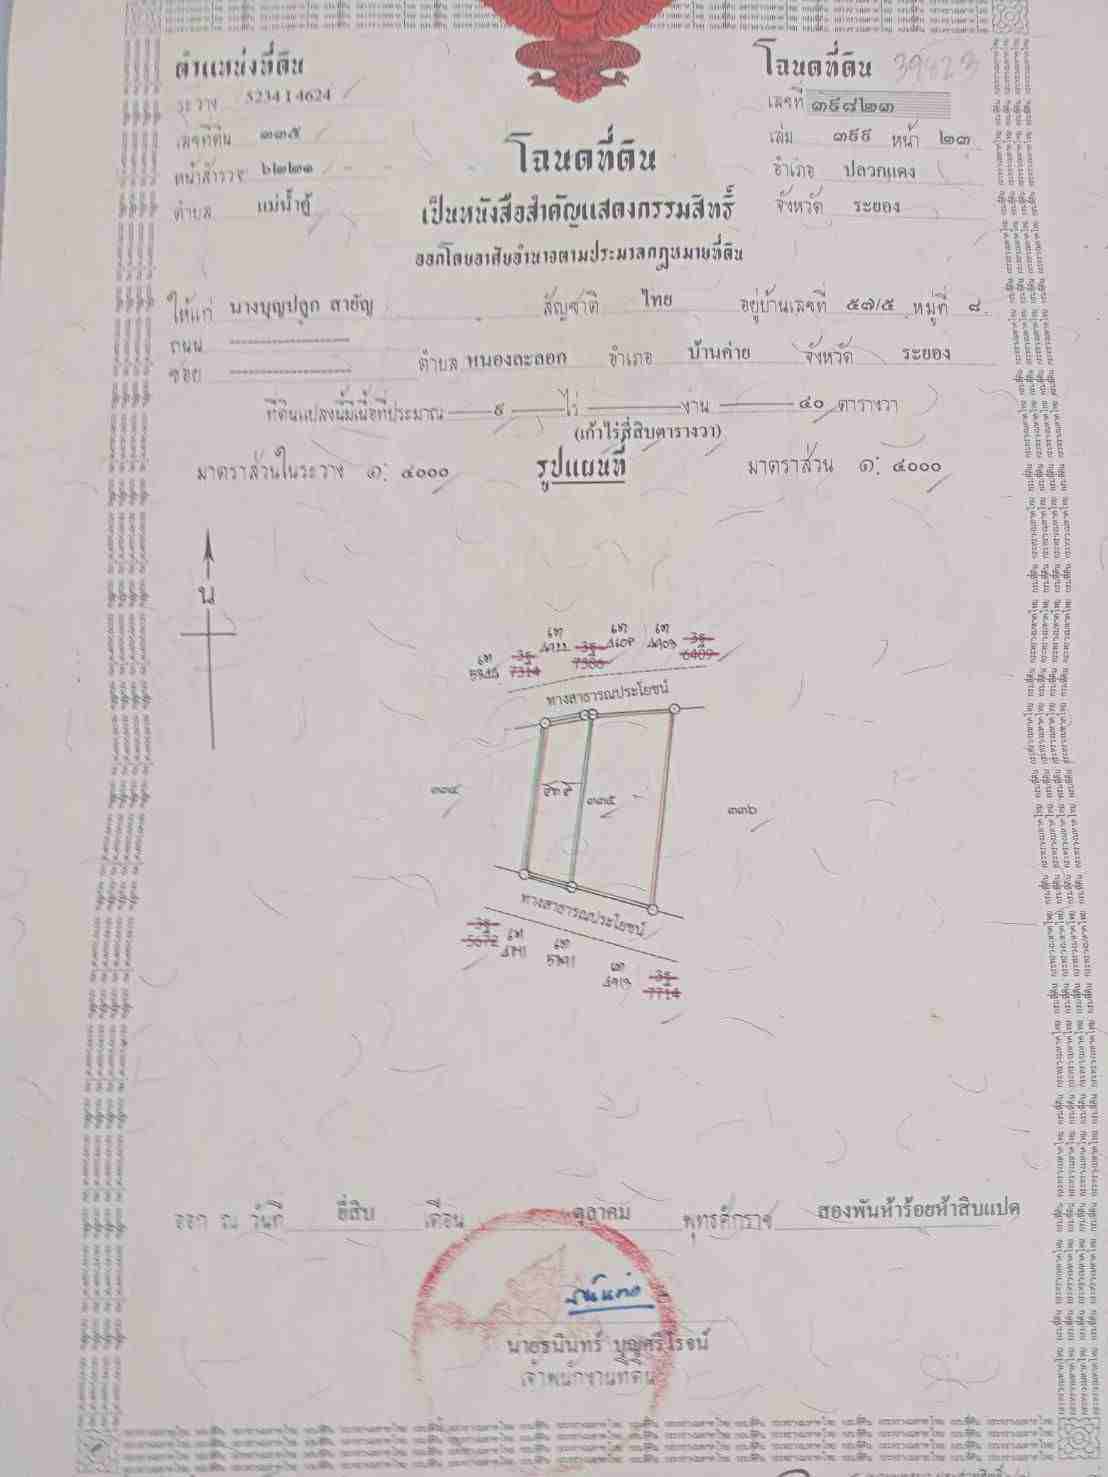 ตำแหน่งที่ดิน
ระวาง 5234 I 4624
เลขที่ดิน ๓๓๕
หน้าสำรวจ ๖๒๒๑
ตำบล แม่น้ำคู้
โฉนดที่ดิน 39823
เลขที่ ๓๙๘๒๓
เล่ม ๓๙๙ หน้า ๒๓
อำเภอ ปลวกแดง
จังหวัด ระยอง
โฉนดที่ดิน
เป็นหนังสือสำคัญแสดงกรรมสิทธิ์
ออกโดยอาศัยอำนาจตามประมวลกฎหมายที่ดิน
ให้แก่ นางบุญปลูก สายัญ สัญชาติ ไทย อยู่บ้านเลขที่ ๕๗/๕ หมู่ที่ ๘
ถนน
ซอย ตำบล หนองละลอก อำเภอ บ้านค่าย จังหวัด ระยอง
ที่ดินแปลงนี้มีเนื้อที่ประมาณ ๙ ไร่ งาน ๔๐ ตารางวา
(เก้าไร่สี่สิบตารางวา)
มาตราส่วนในระวาง ๑: ๔๐๐๐ รูปแผนที่ มาตราส่วน ๑: ๔๐๐๐
น
7314 7386 6409
ทางสาธารณประโยชน์
๓๓๔ ๓๓๕ ๓๓๖
ทางสาธารณประโยชน์
5672
7714
ออก ณ วันที่ ยี่สิบ เดือน ตุลาคม พุทธศักราช สองพันห้าร้อยห้าสิบแปด
นายธนินทร์ บุญศรีโรจน์
เจ้าพนักงานที่ดิน